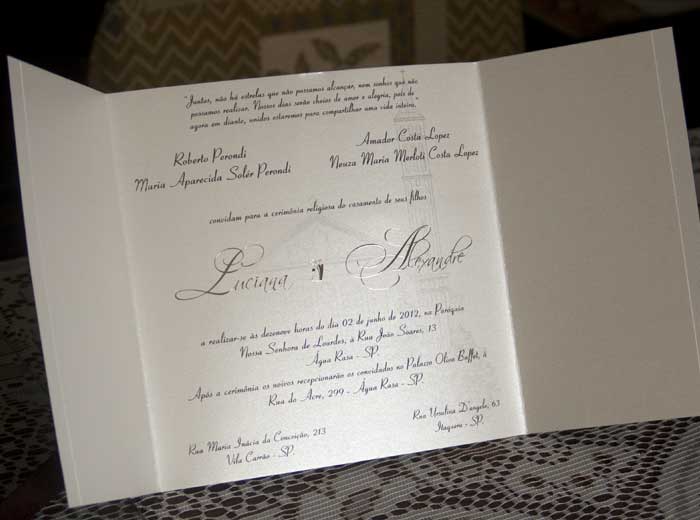 "Juntos, não há estrelas que não possamos alcançar, nem sonhos que não
possamos realizar. Nossos dias serão cheios de amor e alegria, pois de
agora em diante, unidos estaremos para compartilhar uma vida inteira."
Roberto Perondi
Maria Aparecida Solér Perondi
Amador Costa Lopez
Neuza Maria Merloti Costa Lopez
convidam para a cerimônia religiosa do casamento de seus filhos
Luciana Alexandre
a realizar-se às dezenove horas do dia 02 de junho de 2012, na Paróquia
Nossa Senhora de Lourdes, à Rua João Soares, 13
Água Rasa - SP.
Após a cerimônia os noivos recepcionarão os convidados no Palazzo Oliva Buffet, à
Rua do Acre, 299 - Água Rasa - SP.
Rua Maria Inácia da Conceição, 213
Vila Carrão - SP.
Rua Ursulina D'angelo, 63
Itaquera - SP.